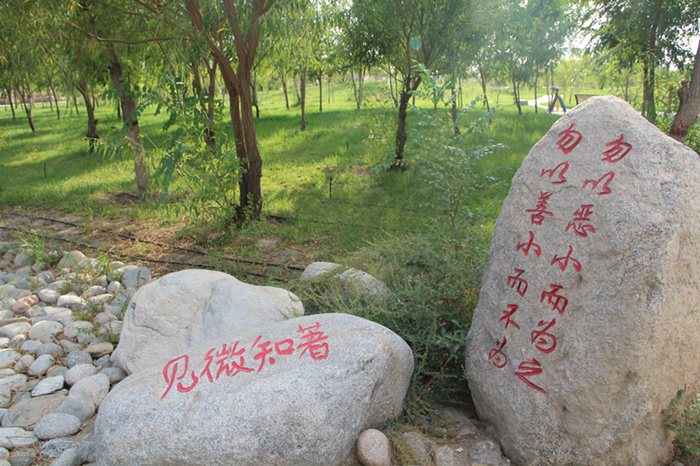 勿以恶小而为之
勿以善小而不为
见微知著